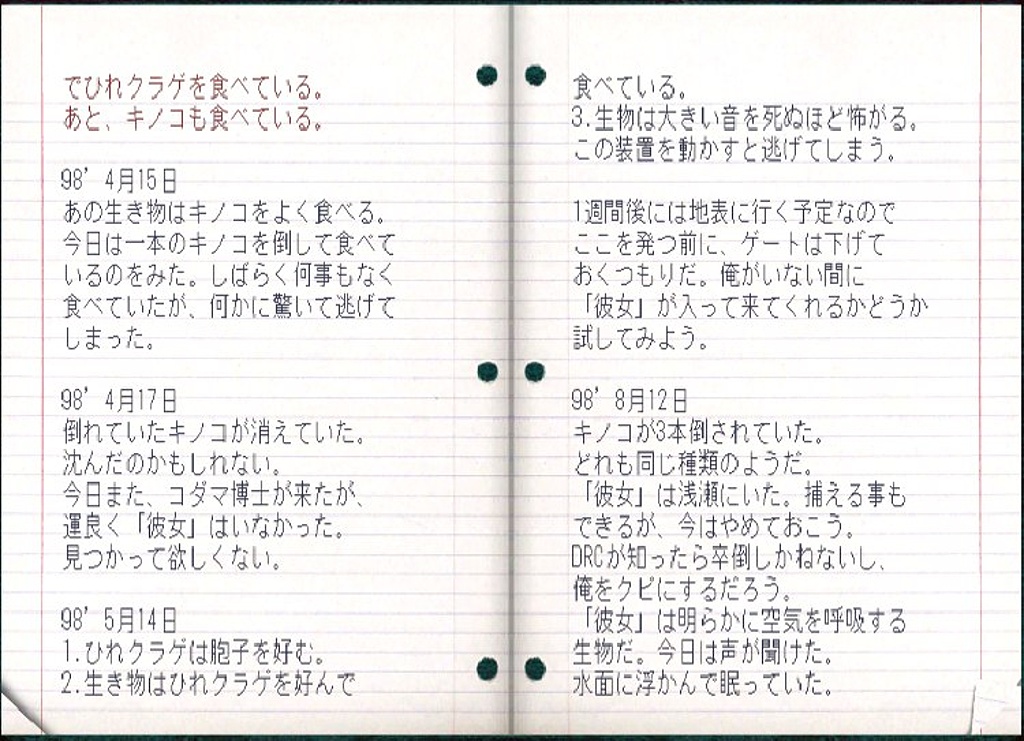 でひれクラゲを食べている。
あと、キノコも食べている。
98’ 4月15日
あの生き物はキノコをよく食べる。
今日は一本のキノコを倒して食べて
いるのをみた。しばらく何事もなく
食べていたが、何かに驚いて逃げて
しまった。
98’ 4月17日
倒れていたキノコが消えていた。
沈んだのかもしれない。
今日また、コダマ博士が来たが、
運良く「彼女」はいなかった。
見つかって欲しくない。
98’ 5月14日
1.ひれクラゲは胞子を好む。
2.生き物はひれクラゲを好んで
食べている。
3.生物は大きい音を死ぬほど怖がる。
この装置を動かすと逃げてしまう。
1週間後には地表に行く予定なので
ここを発つ前に、ゲートは下げて
おくつもりだ。俺がいない間に
「彼女」が入って来てくれるかどうか
試してみよう。
98’ 8月12日
キノコが3本倒されていた。
どれも同じ種類のようだ。
「彼女」は浅瀬にいた。捕える事も
できるが、今はやめておこう。
DRCが知ったら卒倒しかねないし、
俺をクビにするだろう。
「彼女」は明らかに空気を呼吸する
生物だ。今日は声が聞けた。
水面に浮かんで眠っていた。